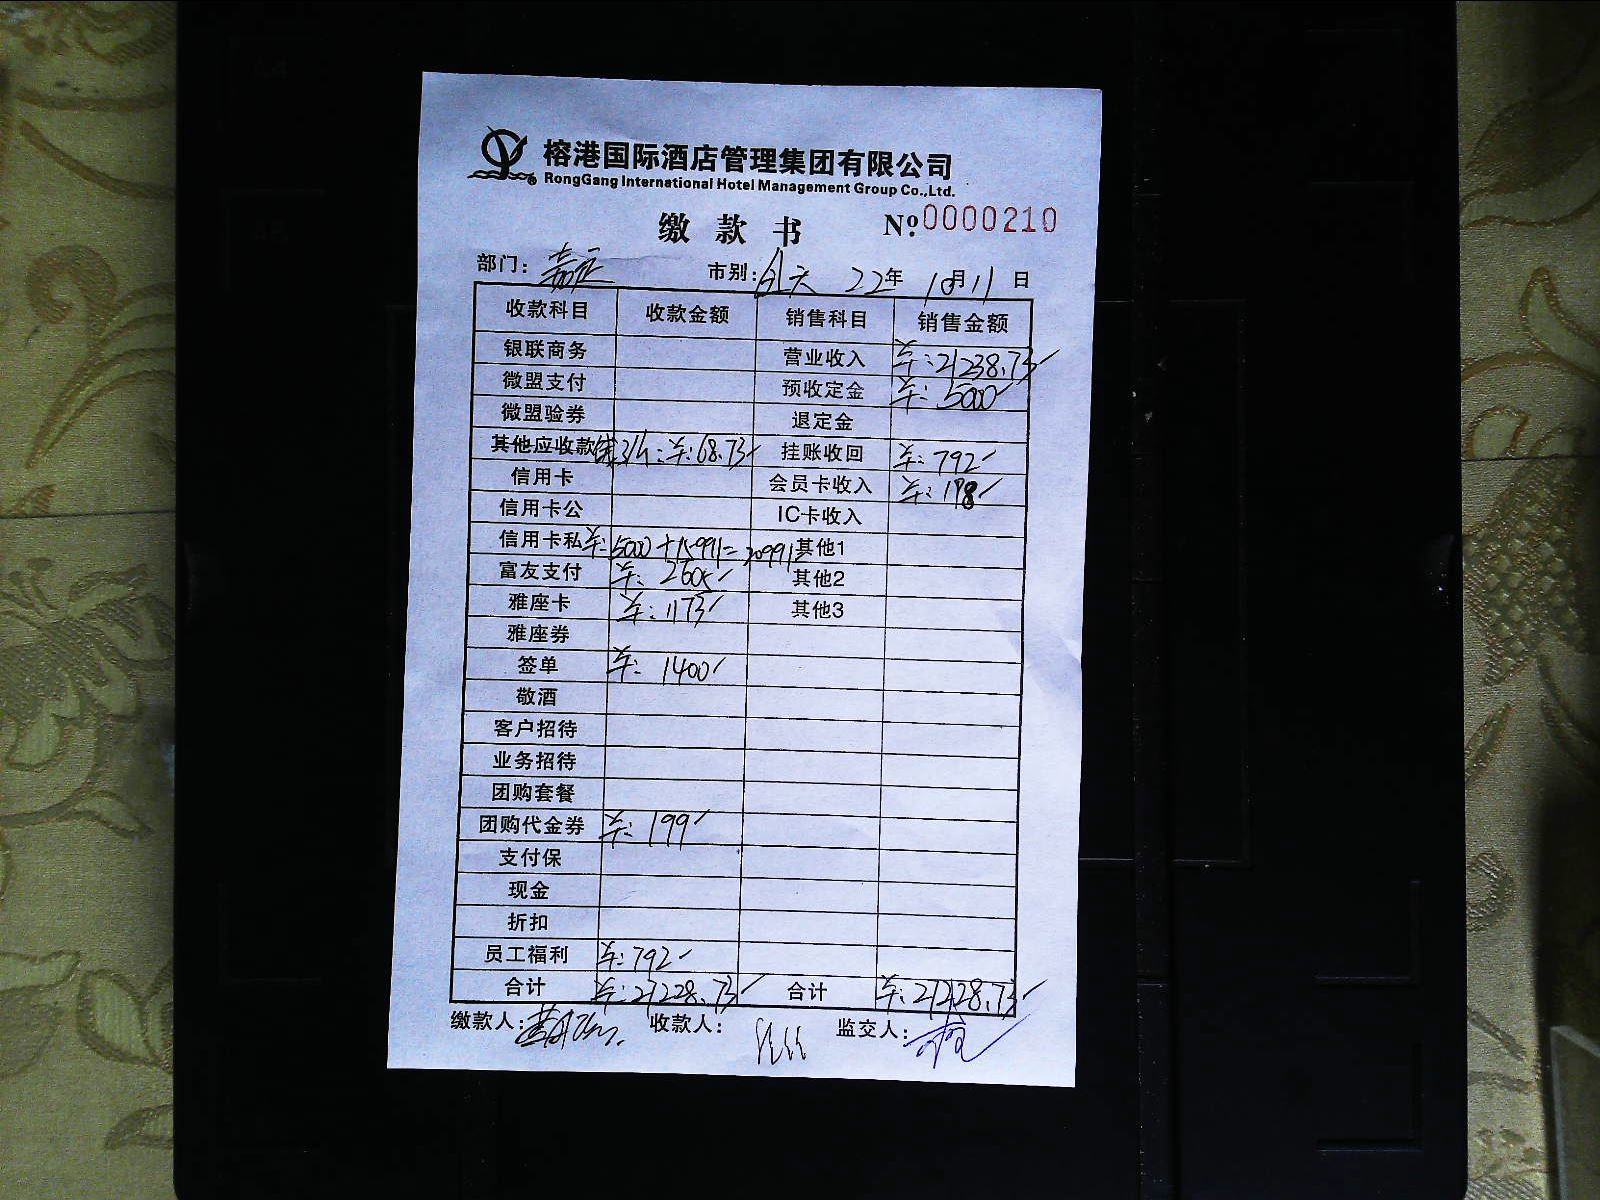 榕港国际酒店管理集团有限公司
RongGang International Hotel Management Group Co.,Ltd.
缴款书 Nº:0000210
部门: 市别:全天 22年10月11日
收款科目 收款金额 销售科目 销售金额
银联商务 营业收入 21238.73
微盟支付 预收定金 5000
微盟验券 退定金
其他应收款 68.73 挂账收回 792
信用卡 会员卡收入 198
信用卡公 IC卡收入
信用卡私 5000+15991=20991 其他1
富友支付 2605 其他2
雅座卡 1173 其他3
雅座券
签单 1400
敬酒
客户招待
业务招待
团购套餐
团购代金券 199
支付保
现金
折扣
员工福利 792
合计 合计
缴款人: 收款人: 监交人: